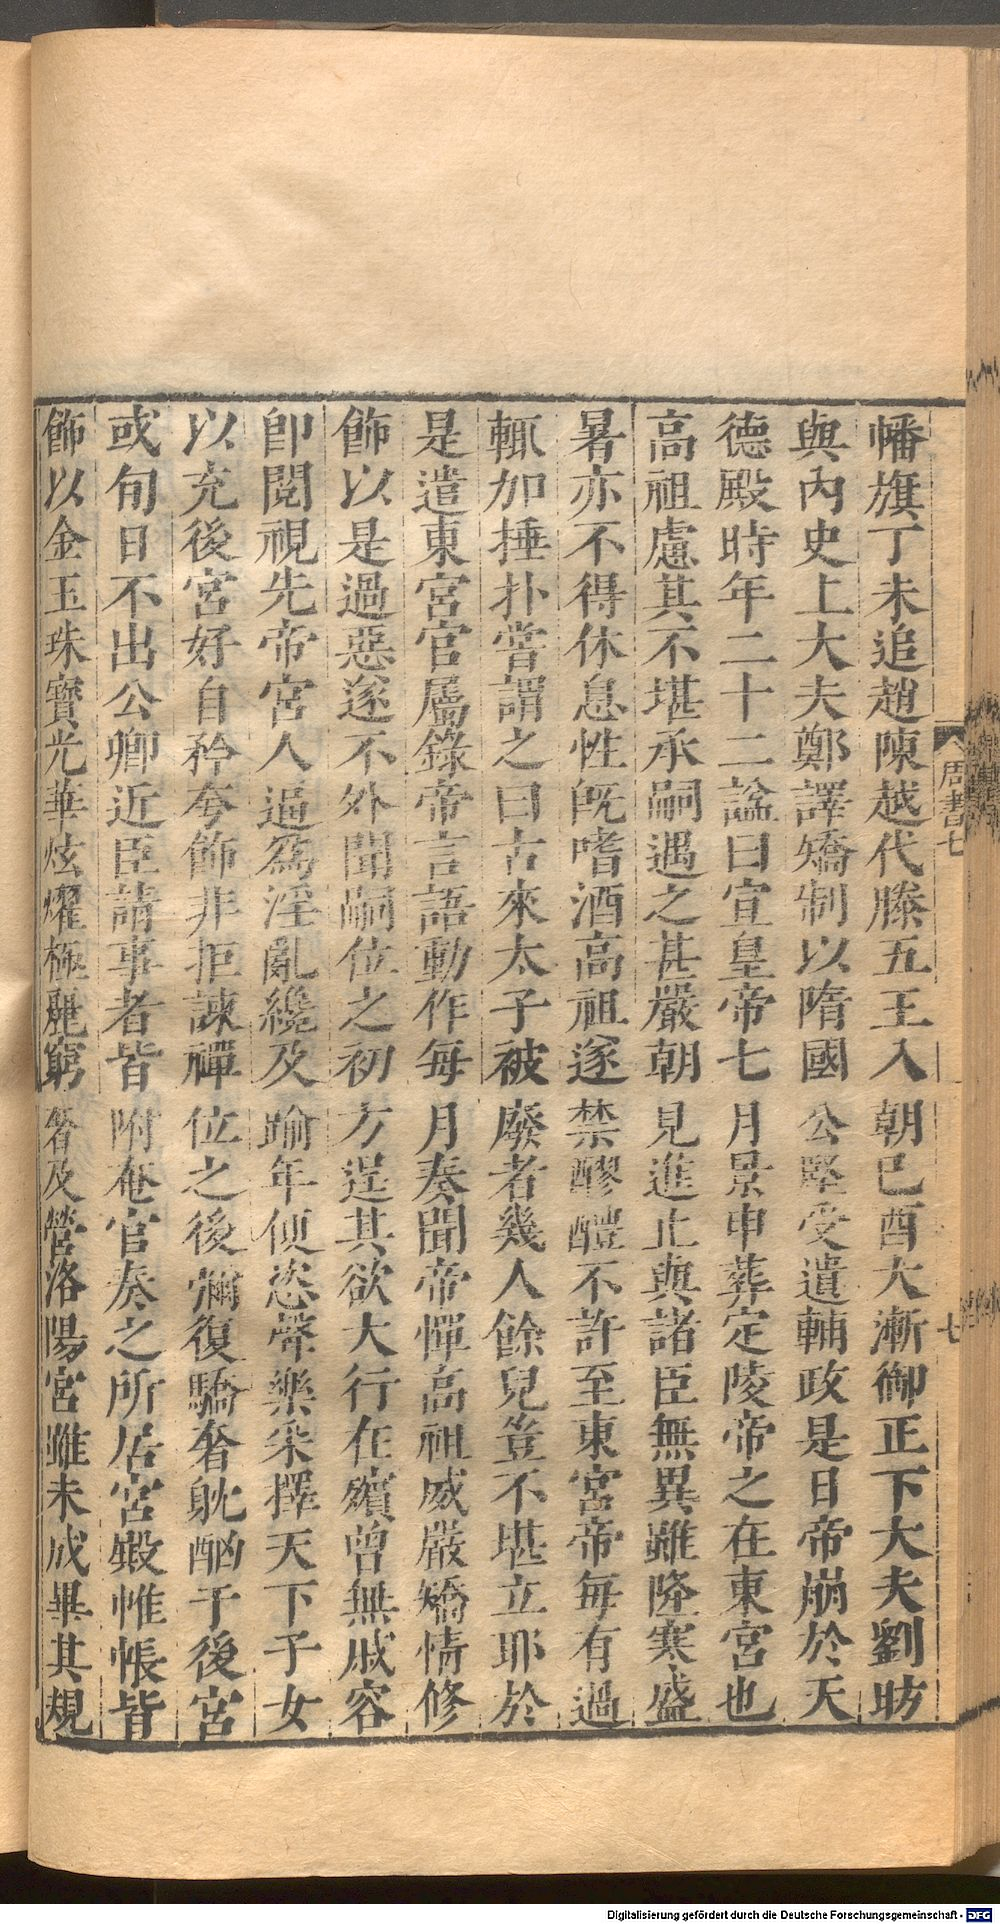 幡旗丁未追趙陳越代滕五王入朝己酉大漸御正下大夫劉昉
與內史上大夫鄭譯矯制以隋國公堅受遺輔政是日帝崩於天
德殿時年二十二諡曰宣皇帝七月景申葬定陵帝之在東宮也
高祖慮其不堪承嗣遇之甚嚴朝見進止與諸臣無異雖隆寒盛
暑亦不得休息性旣嗜酒高祖遂禁醪醴不許至東宮帝每有過
輒加捶扑嘗謂之曰古來太子被廢者幾人餘兒豈不堪立耶於
是遣東宮官屬錄帝言語動作每月奏聞帝憚高祖威嚴矯情修
飾以是過惡遂不外聞嗣位之初方逞其欲大行在殯曾無戚容
卽閱視先帝宮人逼爲淫亂纔及踰年便恣聲樂采擇天下子女
以充後宮好自矜夸飾非拒諫禪位之後彌復驕奢躭酗于後宮
或旬日不出公卿近臣請事者皆附奄官奏之所居宮殿帷帳皆
飾以金玉珠寶光華炫燿極麗窮奢及營洛陽宮雖未成畢其規
周書七
七
Digitalisierung gefördert durch die Deutsche Forschungsgemeinschaft - DFG